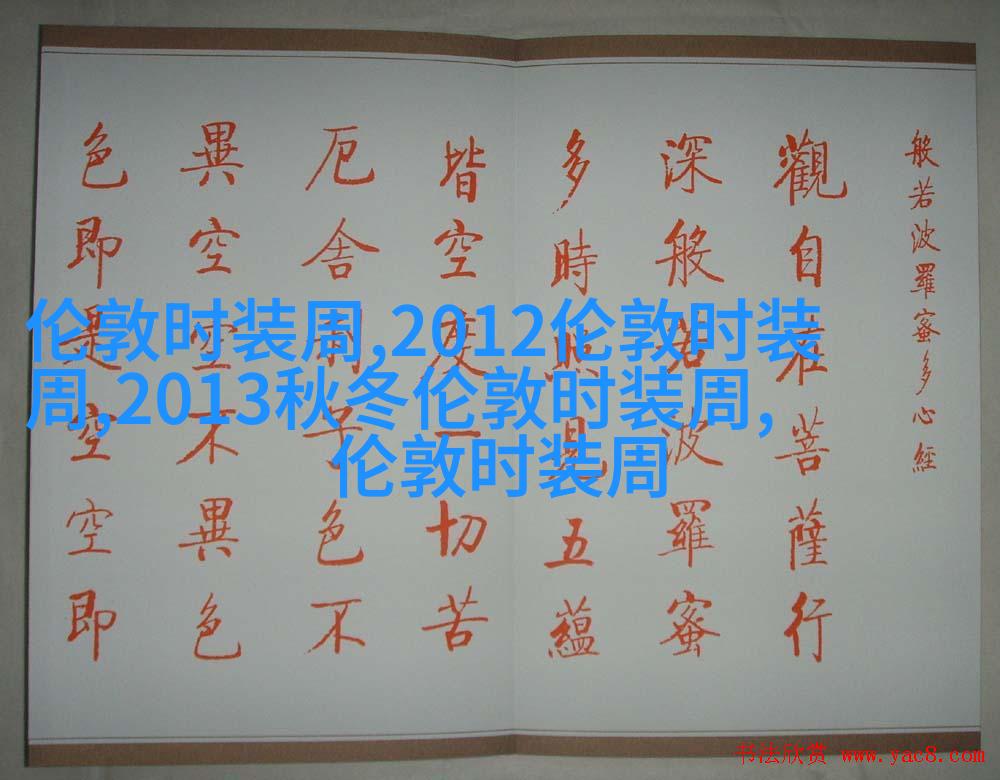 般若波羅蜜多心經
觀自在菩薩行
深般若波羅蜜
多時照見五蘊
皆空度一切苦
厄舍利子色不
異空空不異色
色即是空空即
伦敦时装周,2012伦敦时装
周,2013秋冬伦敦时装周,
伦敦时装周
书法欣赏 www.yac8.com